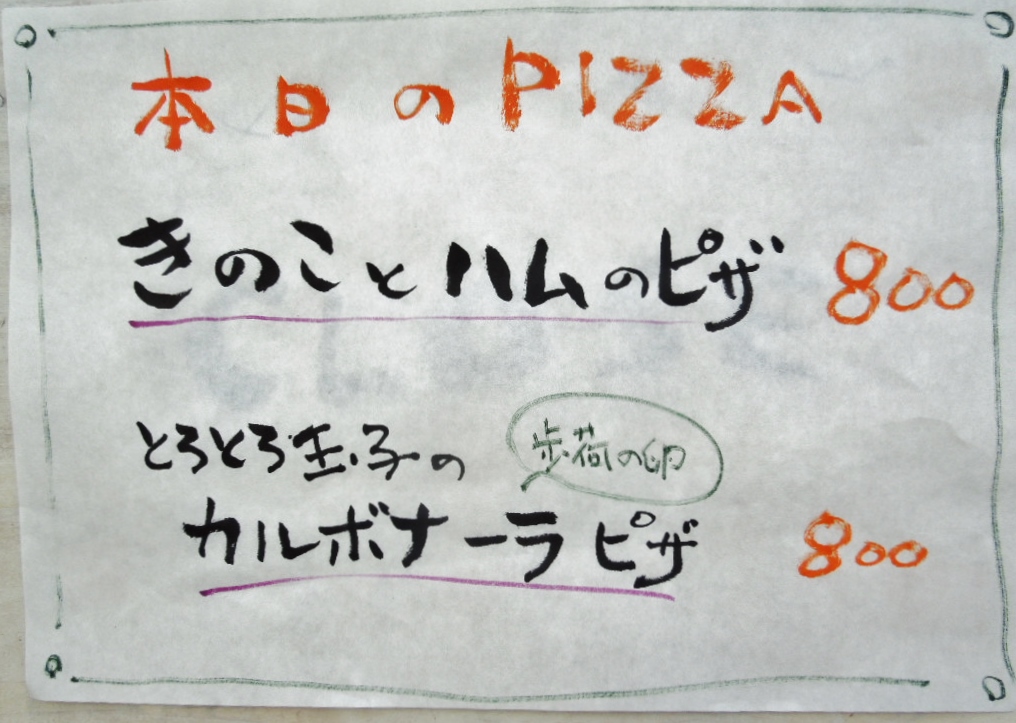 本日のPIZZA
きのことハムのピザ 800
とろとろ玉子の
歩荷の卵
カルボナーラピザ 800